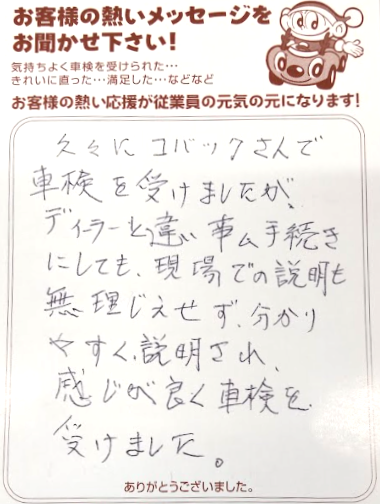 お客様の熱いメッセージを
お聞かせ下さい!
気持ちよく車検を受けられた…
きれいに直った…満足した…などなど
お客様の熱い応援が従業員の元気の元になります!
久々にコバックさんで
車検を受けましたが、
ディーラーと違い事ム手続き
にしても、現場での説明も
無理じえせず、分かり
やすく、説明され、
感じが良く車検を
受けました。
ありがとうございました。